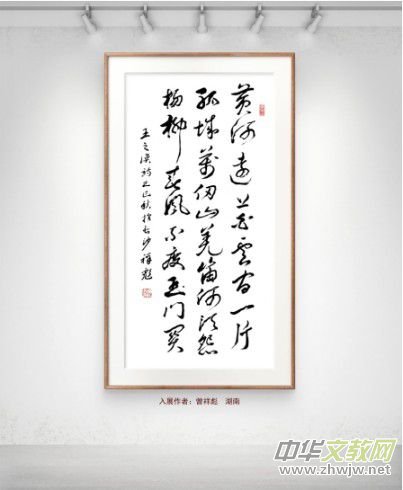 黄河远上白云间一片
孤城万仞山羌笛何须怨
杨柳春风不度玉门关
王之涣诗乙巳秋于长沙祥彪
入展作者：曾祥彪 湖南
中华文教网
www.zhwjw.net